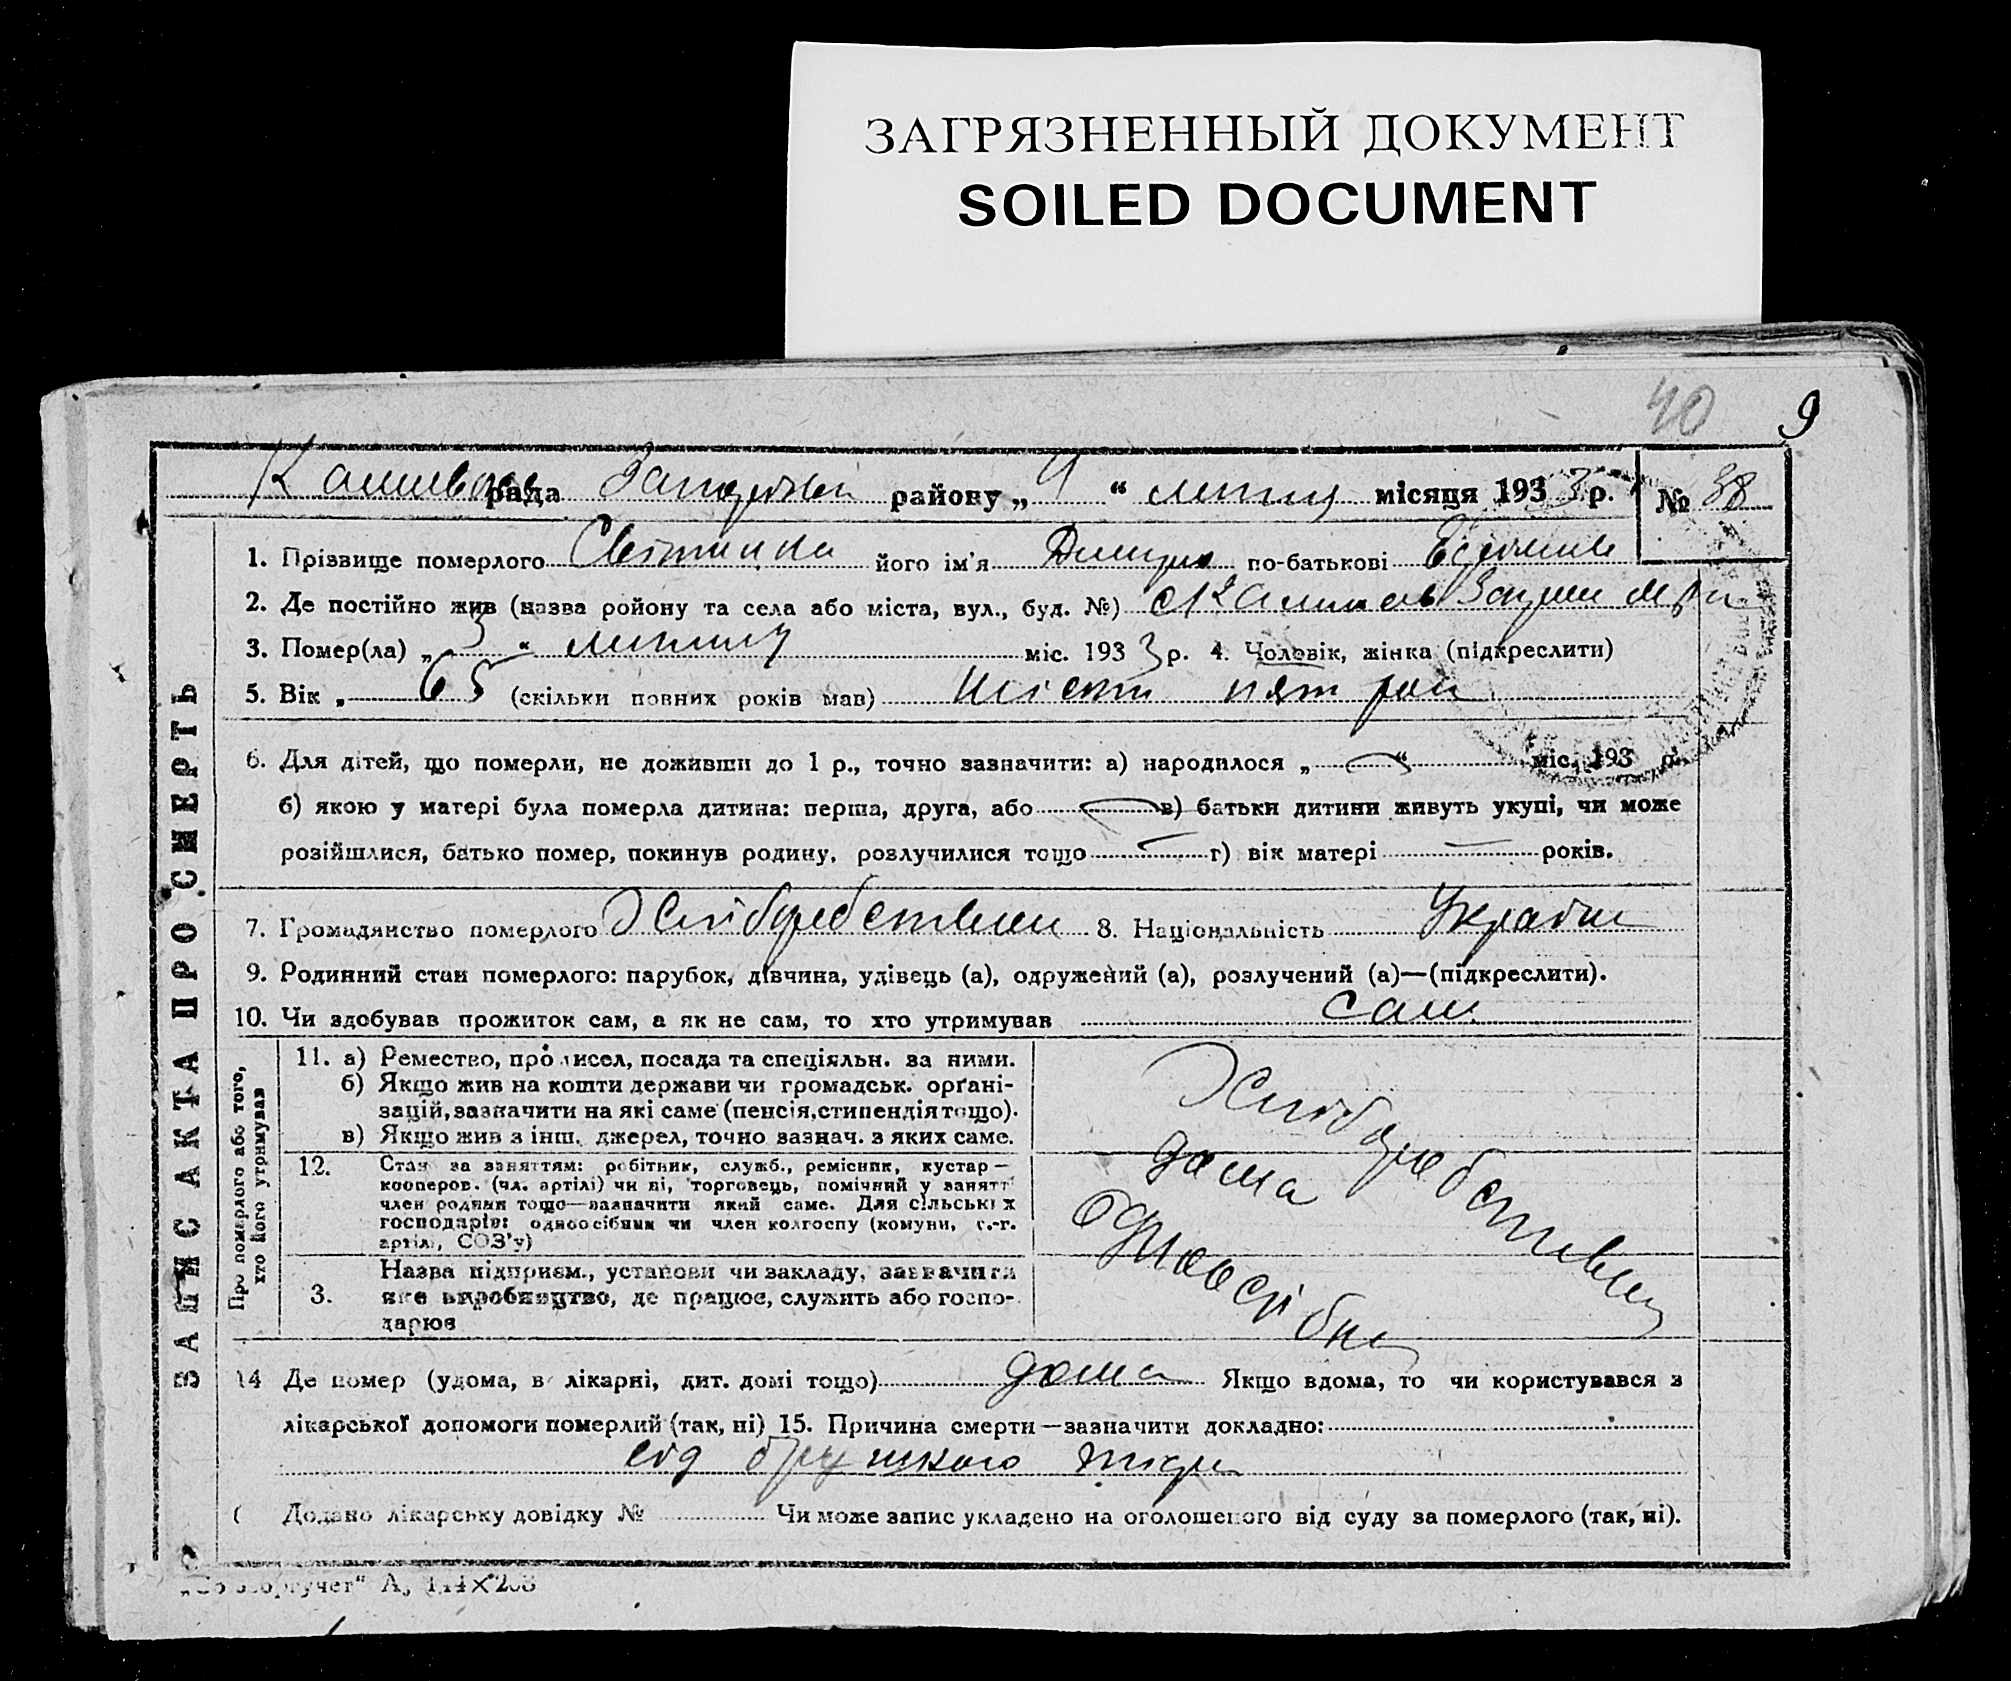 ЗАГРЯЗНЕННЫЙ ДОКУМЕНТ
SOILED DOCUMENT
40 9
рада району „ 9 “ липня місяця 1933 р. № 38
1. Прізвище померлого його ім'я Дмитро по-батькові
2. Де постійно жив (назва ройону та села або міста, вул., буд. №)
3. Помер(ла) „ 3 “ липня міс. 1933 р. 4. Чоловік, жінка (підкреслити)
5. Вік „ 65 (скільки повних років мав) шість пят
6. Для дітей, що померли, не доживши до 1 р., точно зазначити: а) народилося „ “ міс. 193 р.
б) якою у матері була померла дитина: перша, друга, або в) батьки дитини живуть укупі, чи може
розійшлися, батько помер, покинув родину, розлучилися тощо г) вік матері років.
7. Громадянство померлого 8. Національність
9. Родинний стан померлого: парубок, дівчина, удівець (а), одружений (а), розлучений (а)—(підкреслити).
10. Чи здобував прожиток сам, а як не сам, то хто утримував сам
ЗАПИС АКТА ПРО СМЕРТЬ
Про померлого або того, хто його утримував
11. а) Ремество, промисел, посада та спеціяльн. за ними.
б) Якщо жив на кошти держави чи громадськ. орґані-
зацій, зазначити на які саме (пенсія, стипендія тощо).
в) Якщо жив з інш. джерел, точно зазнач. з яких саме.
12. Стан за заняттям: робітник, служб., ремісник, кустар—
кооперов. (чл. артілі) чи ні, торговець, помічний у занятті
член родини тощо—зазначити який саме. Для сільських
господарів: одноосібник чи член колгоспу (комуни, с.-г.
артілі, СОЗ'у)
3. Назва підприєм., установи чи закладу, зазначити
яке виробництво, де працює, служить або госпо-
дарює
дома
14 Де помер (удома, в лікарні, дит. домі тощо) дома Якщо вдома, то чи користувався з
лікарської допомоги померлий (так, ні) 15. Причина смерти—зазначити докладно:
від брушного тифу
Додано лікарську довідку № Чи може запис укладено на оголошеного від суду за померлого (так, ні).